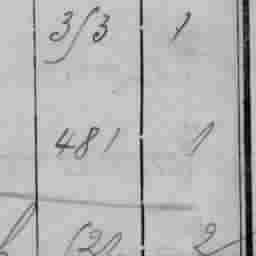 353 1
481 1
2